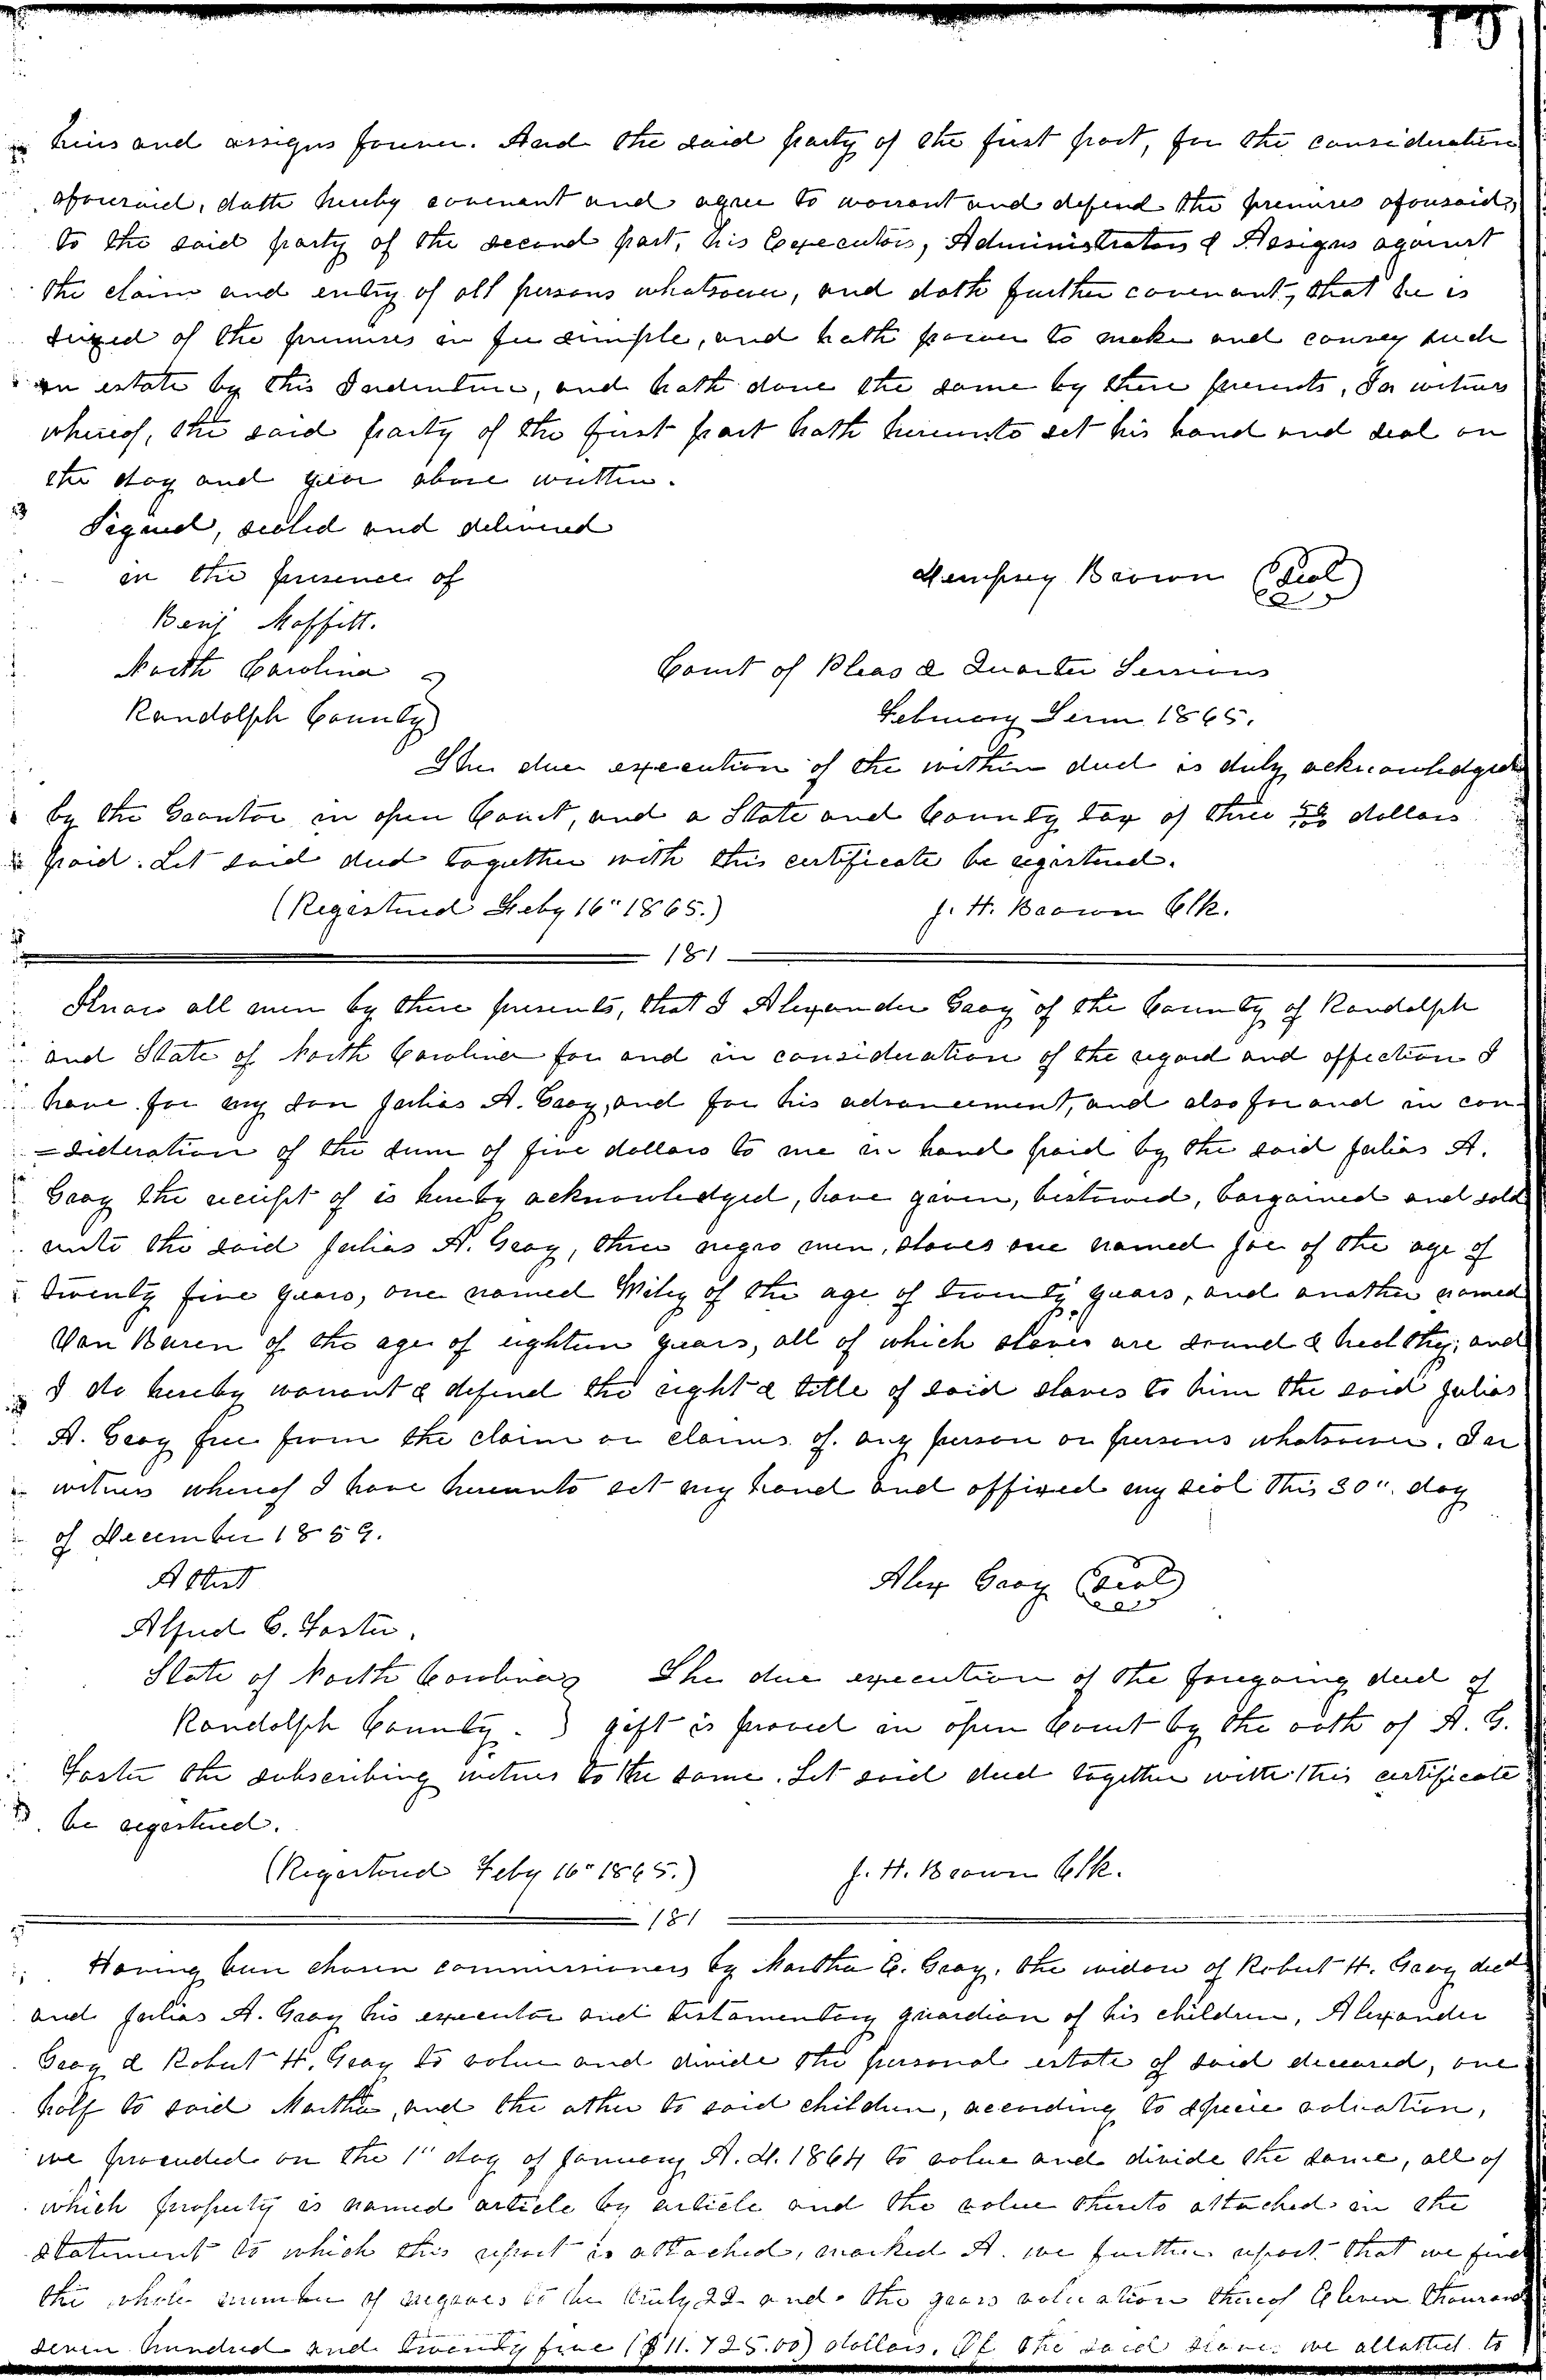 heirs and assigns forever. And the said party of the first part, for the consideration
aforesaid, doth hereby covenant and agree to warrant and defend the premises aforesaid,
to the said party of the second part, his Executors, Administrators & Assigns against
the claim and entry of all persons whatsoever, and doth further covenant, that he is
seized of the premises in fee simple, and hath power to make and convey such
an estate by this Indenture, and hath done the same by these presents, In witness
whereof, the said party of the first part hath hereunto set his hand and seal on
the day and year above written.
Signed, sealed and delivered
in the presence of
Dempsey Brown (Seal)
Benj Moffitt.
North Carolina
Court of Pleas & Quarter Sessions
Randolph County
February Term 1865.
The due execution of the within deed is duly acknowledged
by the Grantor in open Court, and a State and County tax of three dollars
paid. Let said deed together with this certificate be registered.
(Registered Feby 16" 1865.)
J. H. Brown Clk.
181
Know all men by these presents, that I Alexander Gray of the County of Randolph
and State of North Carolina for and in consideration of the regard and affection I
have for my son Julias A. Gray, and for his advancement, and also for and in con-
=sideration of the sum of five dollars to me in hand paid by the said Julias A.
Gray the receipt of is hereby acknowledged, have given, bestowed, bargained and sold
unto the said Julias A. Gray, three negro men, slaves one named Joe of the age of
twenty five years, one named Wiley of the age of twenty years, and another named
Van Buren of the age of eighteen years, all of which slaves are sound & healthy; and
I do hereby warrant & defend the right & title of said slaves to him the said Julias
A. Gray free from the claim or claims of any person or persons whatsoever. In
witness whereof I have hereunto set my hand and affixed my seal this 30" day
of December 1859.
Attest
Alex Gray (Seal)
Alfred G. Foster.
State of North Carolina
The due execution of the foregoing deed of
Randolph County.
gift is proved in open Court by the oath of A. G.
Foster the subscribing witness to the same. Let said deed together with this certificate
be registered.
(Registered Feby 16" 1865.)
J. H. Brown Clk.
181
Having been chosen commissioners by Martha E. Gray, the widow of Robert H. Gray decd
and Julias A. Gray his executor and testamentary guardian of his children, Alexander
Gray & Robert H. Gray to value and divide the personal estate of said deceased, one
half to said Martha, and the other to said children, according to specie valuation,
we proceeded on the 1" day of January A. D. 1864 to value and divide the same, all of
which property is named article by article and the value thereto attached in the
statement to which this report is attached, marked A. we further report that we find
the whole number of negroes to be truly 22 and the gross valuation thereof Eleven thousand
seven hundred and twenty five ($11.725.00) dollars. Of the said slaves we allotted to